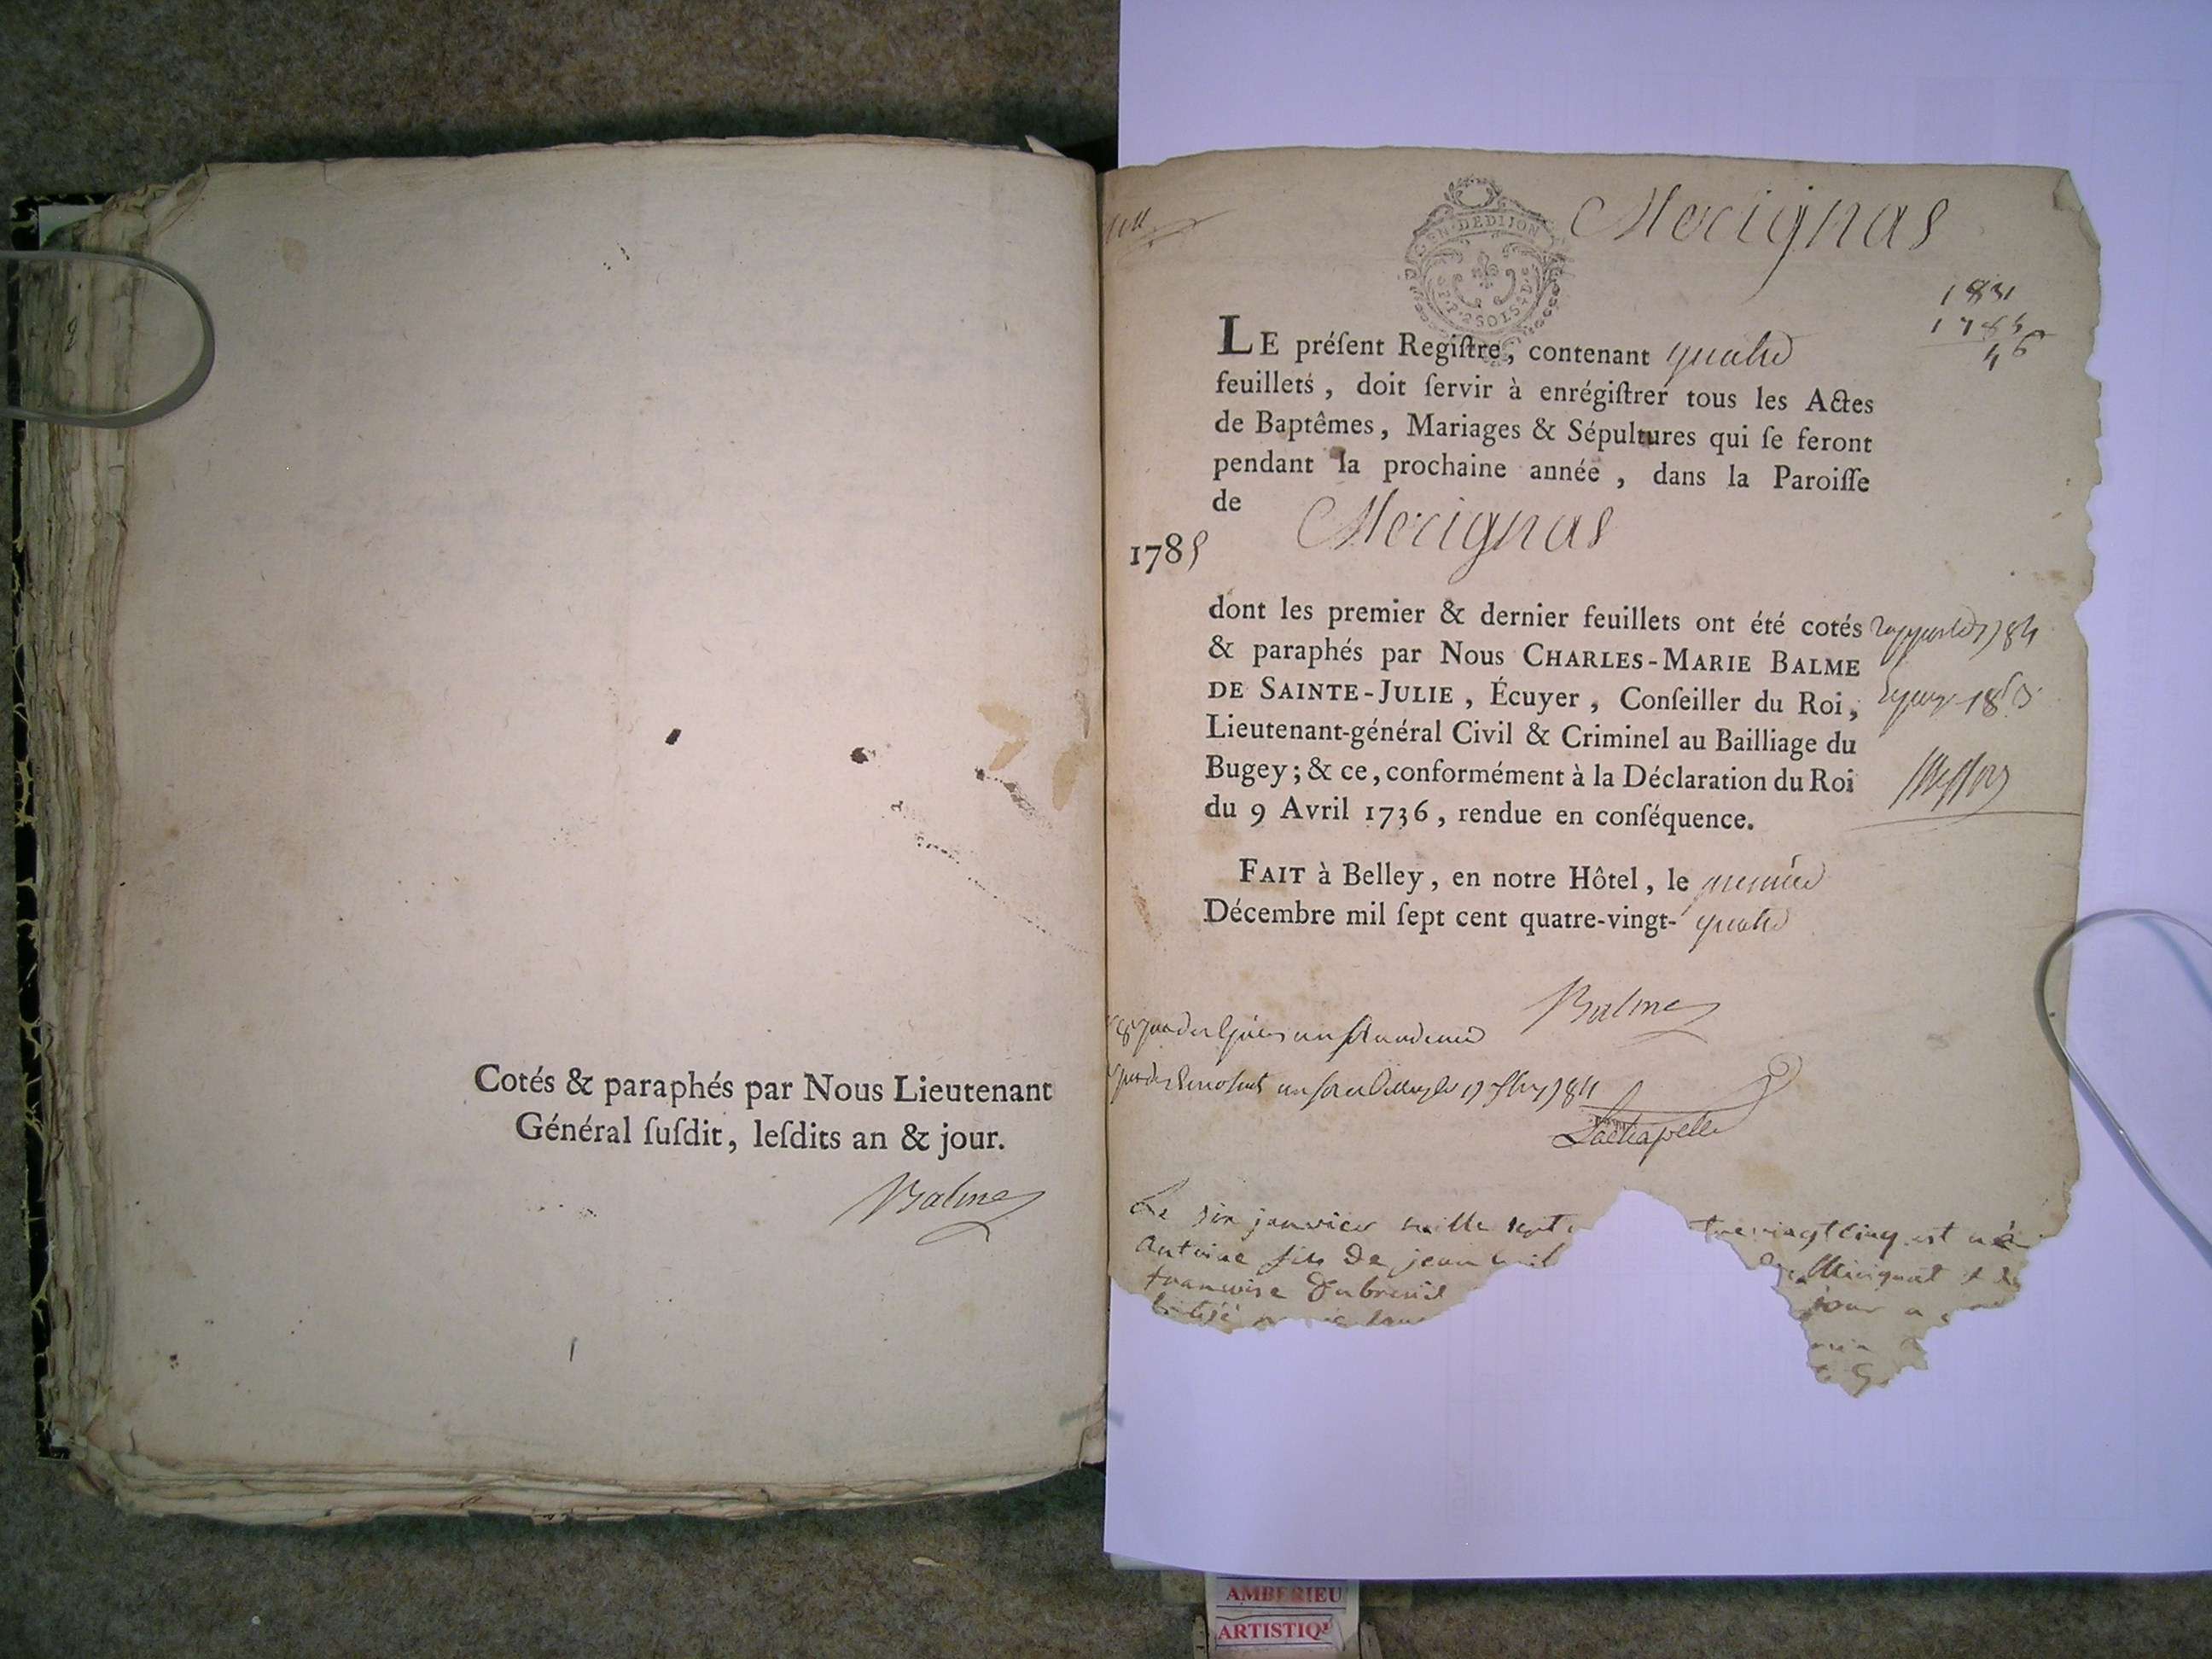 Cotés & paraphés par Nous Lieutenant
Général ſuſdit, leſdits an & jour.
Balme
Merignas
GEN·DEDIJON
2SOLS
1831
1785
46
LE préſent Regiſtre, contenant quatre
feuillets, doit ſervir à enrégiſtrer tous les Actes
de Baptêmes, Mariages & Sépultures qui ſe feront
pendant la prochaine année, dans la Paroiſſe
de Merignas
1785
dont les premier & dernier feuillets ont été cotés
& paraphés par Nous CHARLES-MARIE BALME
DE SAINTE-JULIE, Écuyer, Conſeiller du Roi,
Lieutenant-général Civil & Criminel au Bailliage du
Bugey; & ce, conformément à la Déclaration du Roi
du 9 Avril 1736, rendue en conſéquence.
FAIT à Belley, en notre Hôtel, le premier
Décembre mil ſept cent quatre-vingt-quatre
Balme
Lachapelle
Le six janvier mille sept tre vingt cinq est né
Antoine fils De jean
francoise Dubreuil
jour a
AMBERIEU
ARTISTIQ